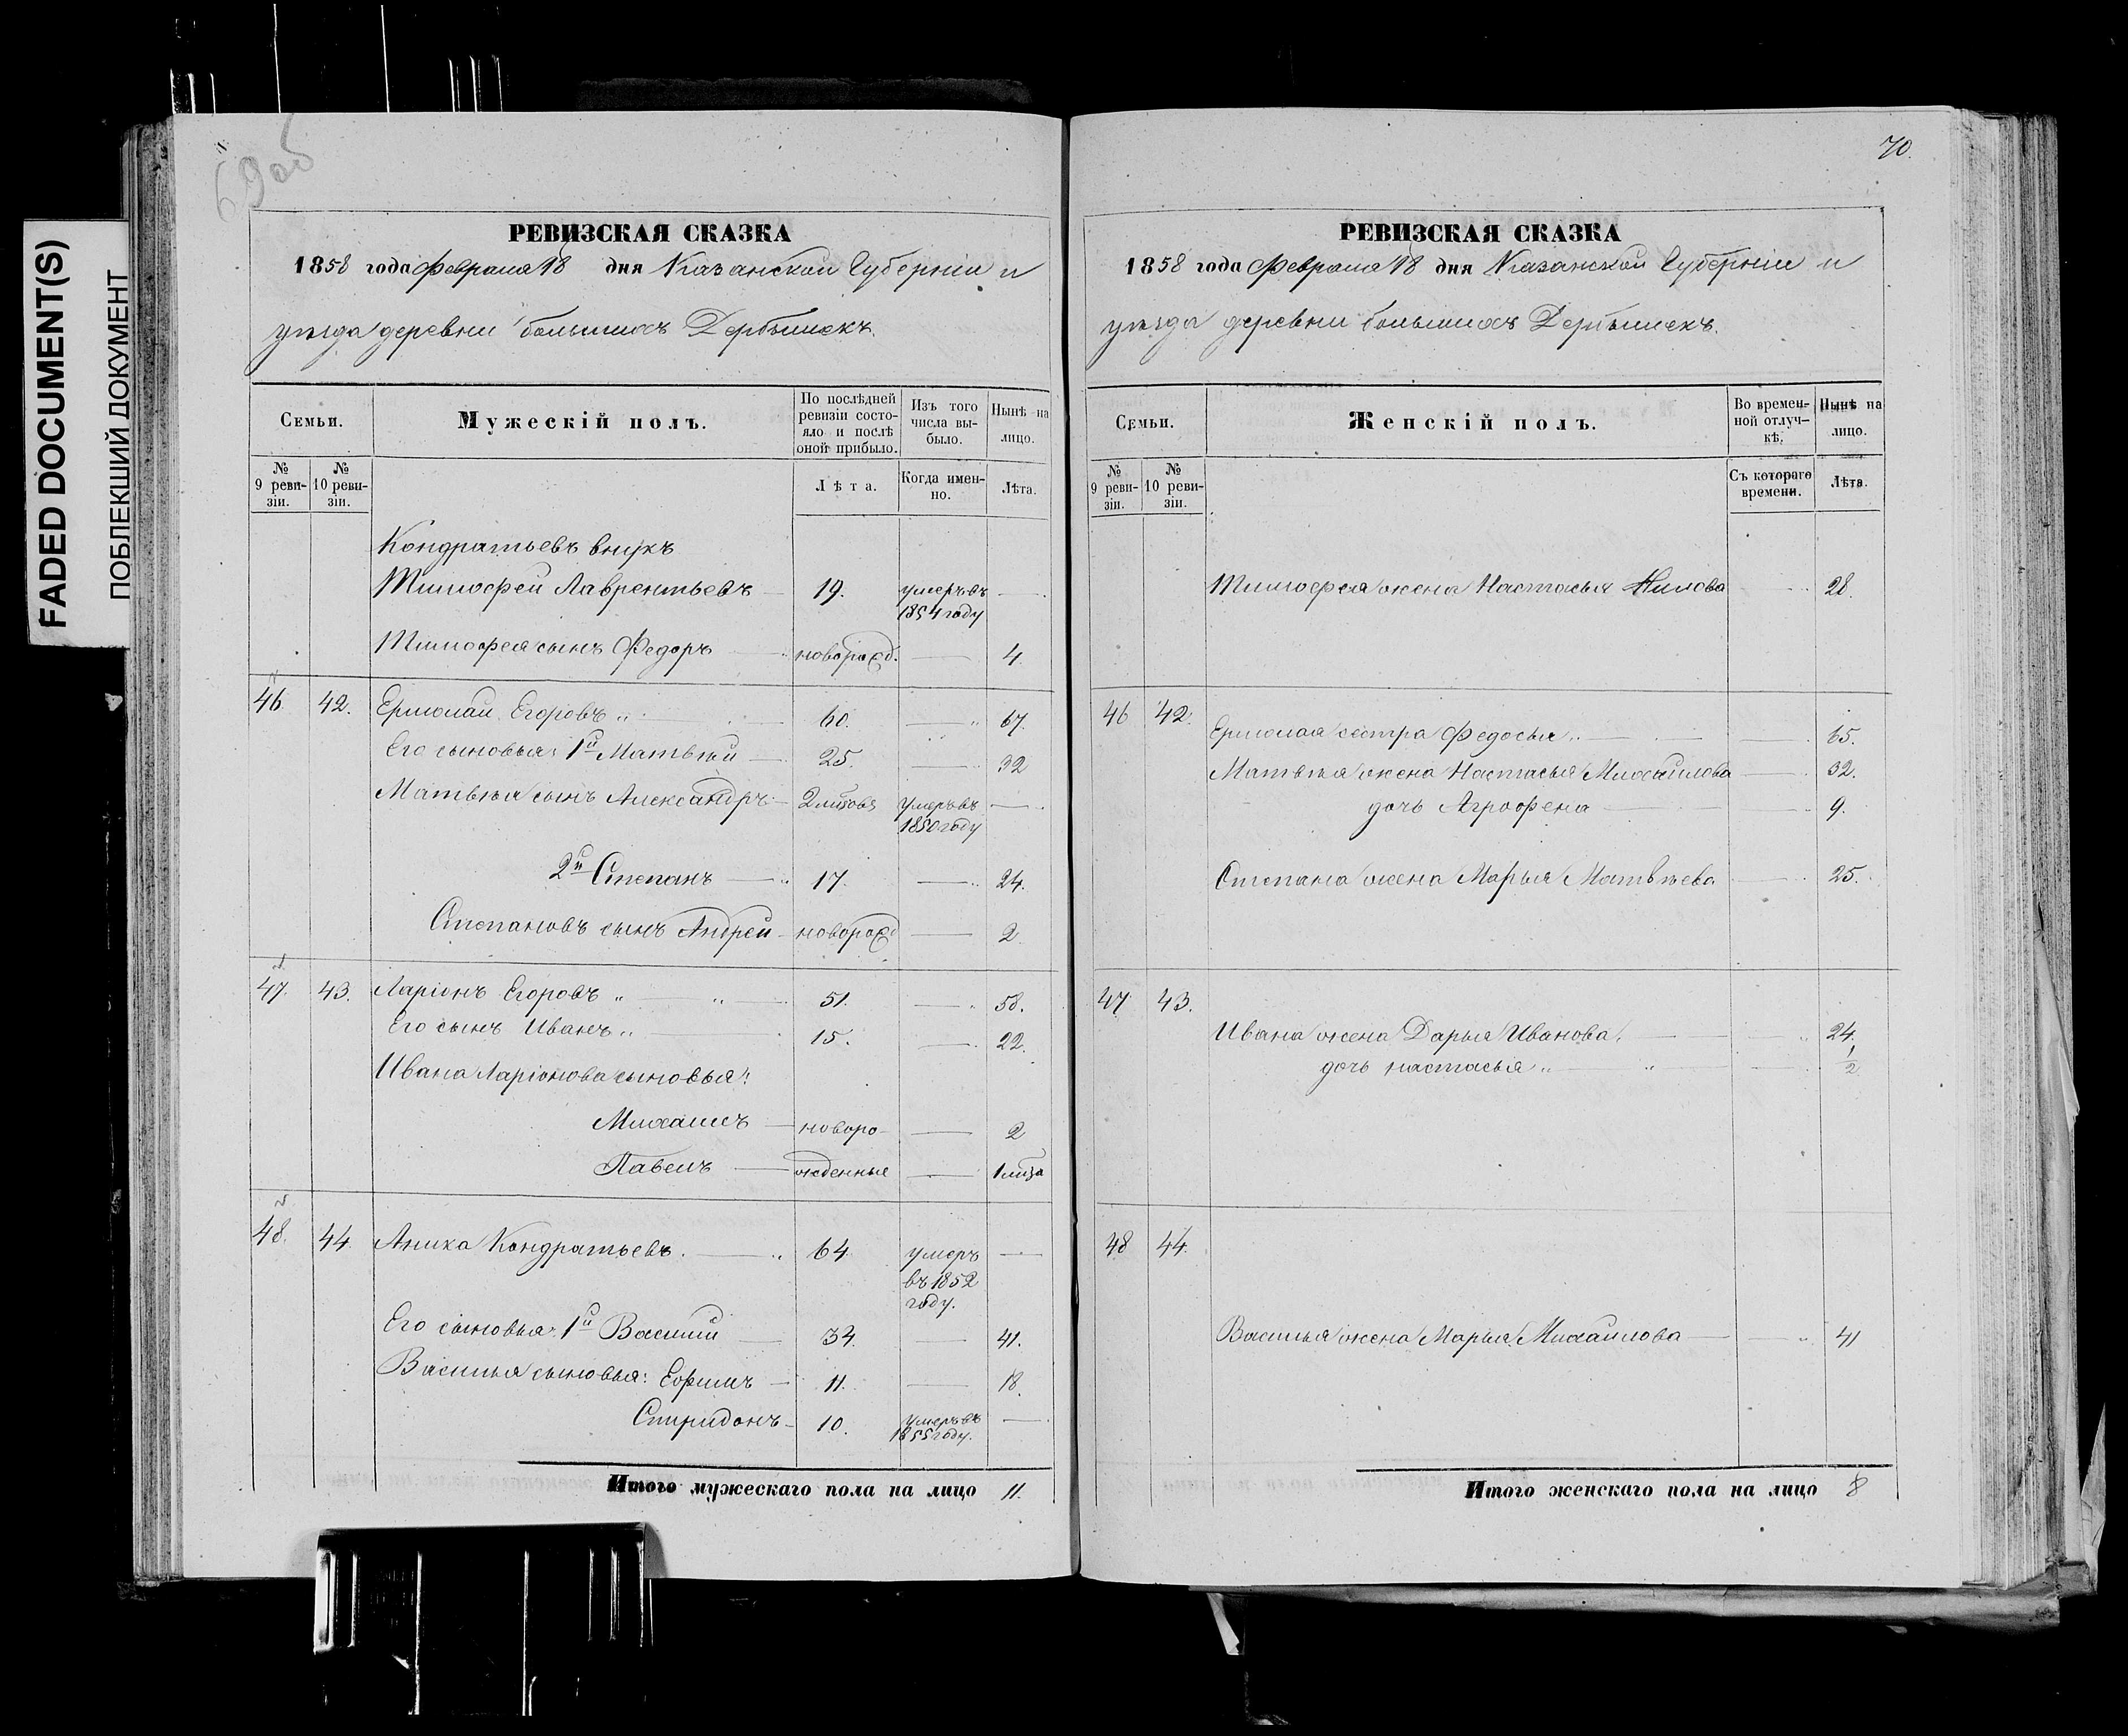 FADED DOCUMENT(S)
ПОБЛЕКШИЙ ДОКУМЕНТ
69об
РЕВИЗСКАЯ СКАЗКА
1858 года Февраля 18 дня Казанской Губерніи и
уѣзда деревни большихъ Дербышекъ.
Семьи.
Мужескій полъ.
По послѣдней ревизіи состояло и послѣ оной прибыло.
Изъ того числа выбыло.
Нынѣ на лицо.
№ 9 ревизіи.
№ 10 ревизіи.
Лѣта.
Когда именно.
Лѣта.
Кондратьевъ внукъ
Тимофей Лаврентьевъ 19. умеръ въ 1854 году
Тимофея сынъ Федоръ новорожд. 4
46. 42. Ермолай Егоровъ 60. 67.
Его сыновья: 1й Матвѣй 25. 32
Матвѣя сынъ Александръ умеръ въ 1850 году
2й Степанъ 17. 24.
Степановъ сынъ Андрей новорожд 2
47. 43. Ларіонъ Егоровъ 51. 58.
Его сынъ Иванъ 15. 22.
Ивана Ларіонова сыновья:
Михаилъ новоро- 2
Павелъ жденные
48. 44. Аника Кондратьевъ. 64 умеръ въ 1852 году.
Его сыновья: 1й Василій 34. 41.
Василья сыновья: Ефимъ 11. 18.
Спиридонъ 10. умеръ въ 1855 году.
Итого мужескаго пола на лицо 11.
70.
РЕВИЗСКАЯ СКАЗКА
1858 года Февраля 18 дня Казанской Губерніи и
уѣзда деревни большихъ Дербышекъ.
Семьи.
Женскій полъ.
Во временной отлучкѣ.
Нынѣ на лицо.
№ 9 ревизіи.
№ 10 ревизіи.
Съ котораго времени.
Лѣта.
Тимофея жена Настасья 28.
46 42. Ермолая сестра Федосья 65.
Матвѣя жена Настасья Михайлова 32.
дочь Агрофена 9.
Степана жена Марья Матвѣева 25.
47 43.
Ивана жена Дарья Иванова 24.
дочь настасья 1/2
48 44.
Василья жена Марья Михайлова 41
Итого женскаго пола на лицо 8